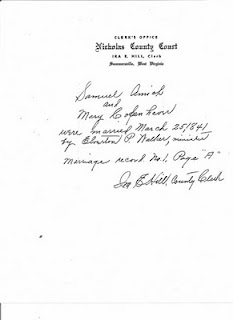 CLERK'S OFFICE
Nicholas County Court
IRA E. HILL, Clerk
Summersville, West Virginia
Samuel Amick
and
Mary
were married March 25/841
by P. minister
Marriage record No. 1, Page "A"
Ira E Hill, County Clerk